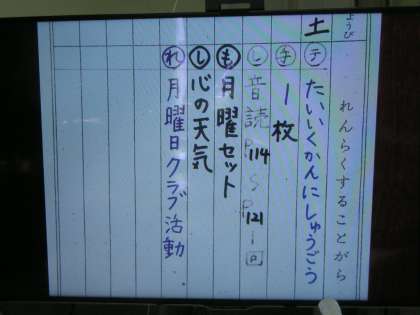 ようび
土
れんらくすることがら
㋢ たいいくかんにしゅうごう
㋠ 1枚
音読 P114〜P121
㋲ 月曜セット
㋛ 心の天気
㋹ 月曜日クラブ活動